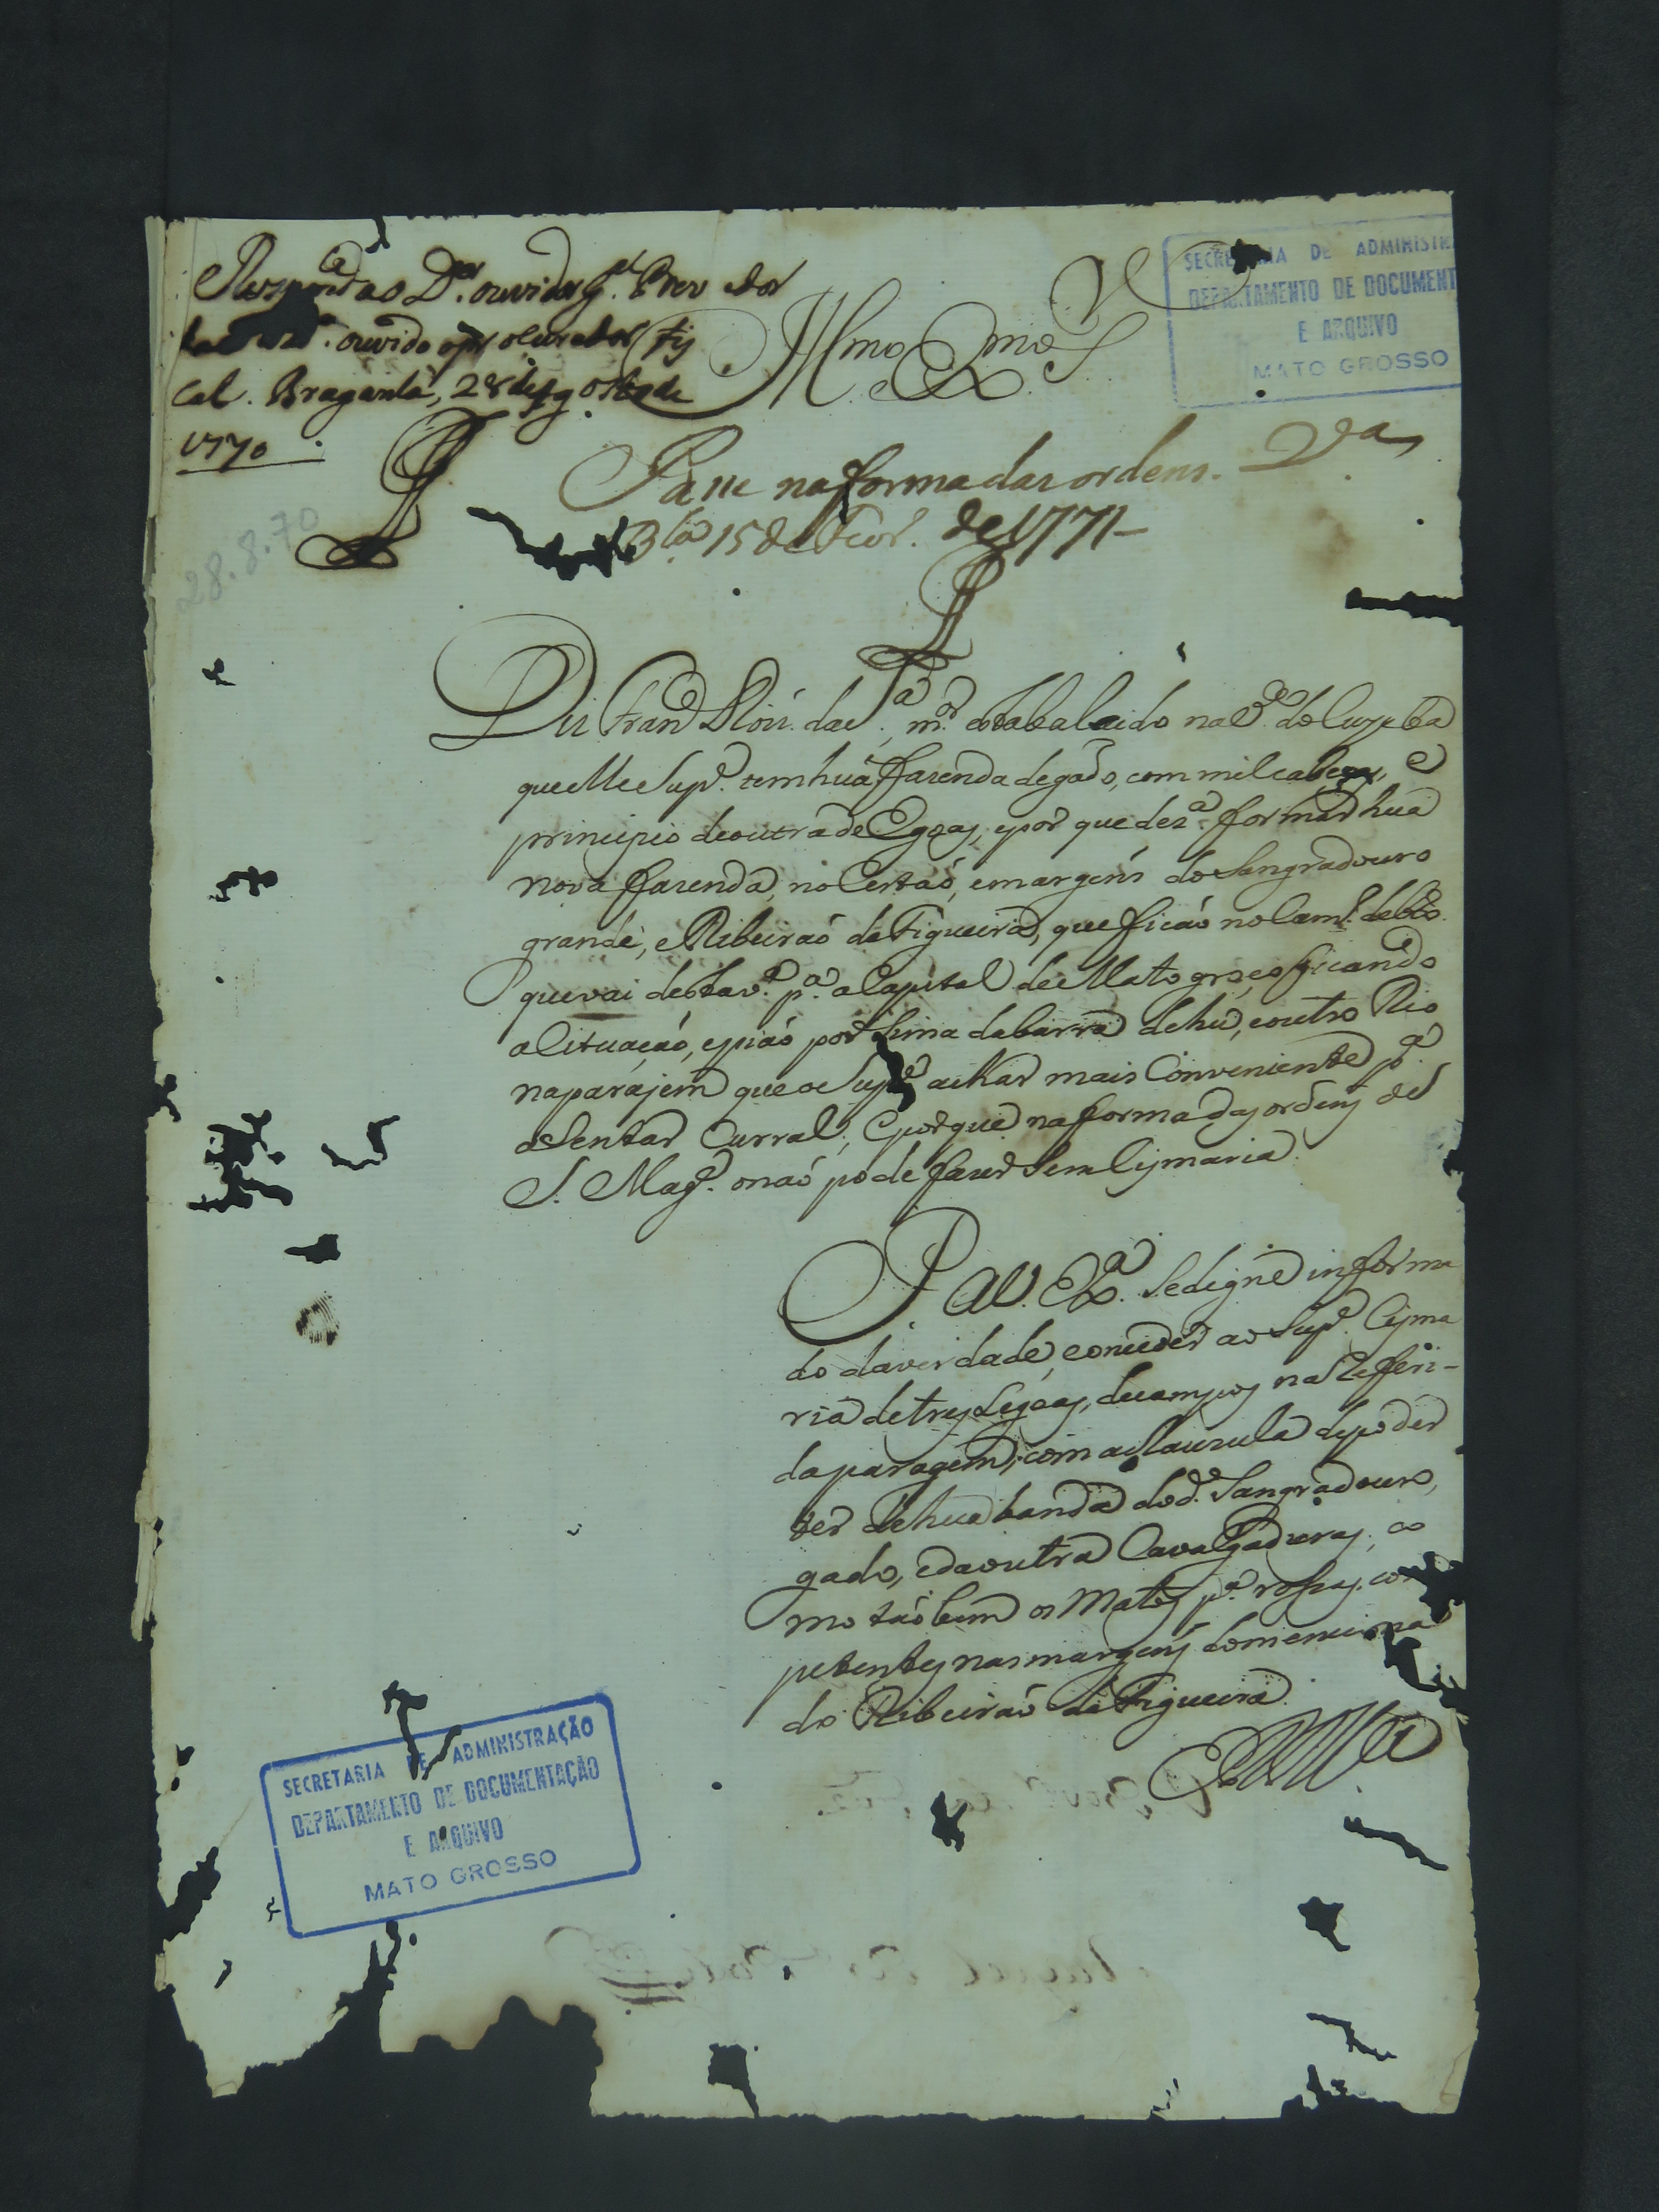 Responda o D.or ouvidor g.al Prov edor
ouvido o procurador fis
cal. Bragansa, 28 de Agosto de
1770
Ill.mo e Ex.mo S.
SECRETARIA DE ADMINISTR
DEPARTAMENTO DE DOCUMENT
E ARQUIVO
MATO GROSSO
Passe na forma das ordens. V.a
15 de Fevr. de 1771
28.8.70
Diz Fran.co Roiz. da S.a, m.or estabalecido na V.a do Cuyaba
que elle Sup.e tem hua fazenda de gado, com mil cabeças, e
principio de outra de Egoas, e por que dez.a formar hua
nova fazenda, no Certaõ, e margens do Sangradouro
grande, e Ribeiraõ da Figueira, que ficaõ no Cam.o de
que vai desta v.a p.a a Capital de Mato groço, ficando
a Situaçaõ, e piaõ por Sima da barra de hu, e outro Rio
na parajem que o Sup.e achar mais Conveniente p.a
aSentar Curral; E porque na forma das ordens de
S. Mag.e o naõ pode fazer Sem Cismaria.
P. a V. Ex.a Se digne informa
do da verdade, conceder ao Sup.e Cisma
ria de tres Legoas, de campos na Referi-
da paragem, com a clauzula de poder
ter de hua banda do d.o Sangradouro,
gado, e da outra Cavalgaduras, co
mo taõbem os Matos p.a rossas, com
petentes nas margens do menciona
do Ribeiraõ da Figueira.
E R M.ce
SECRETARIA DE ADMINISTRAÇÃO
DEPARTAMENTO DE DOCUMENTAÇÃO
E ARQUIVO
MATO GROSSO